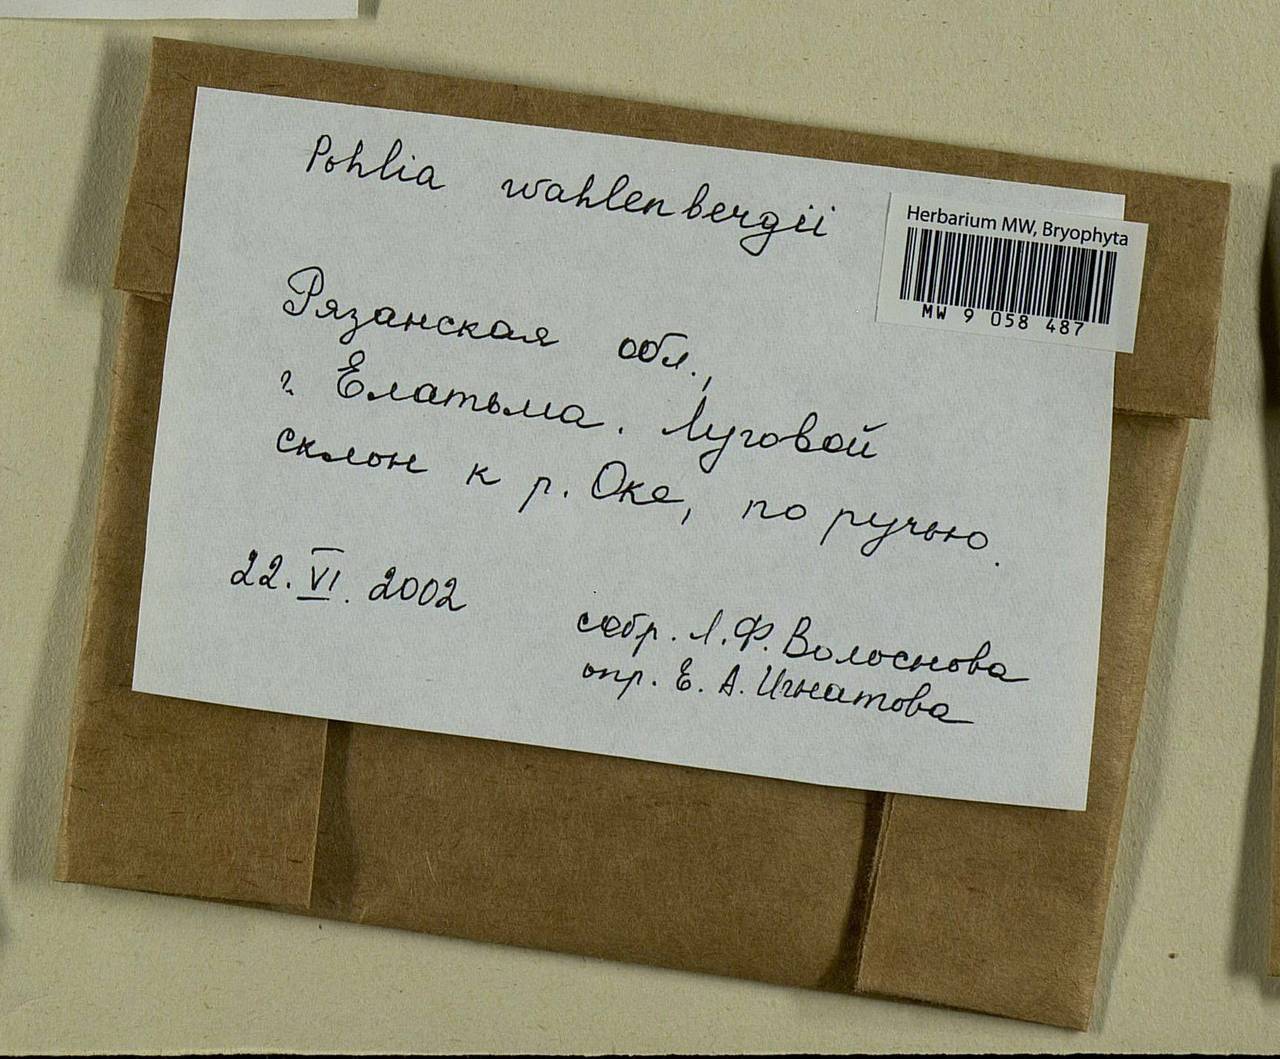 Pohlia wahlenbergii
Herbarium MW, Bryophyta
MW 9 058 487
Рязанская обл.,
г. Елатьма. Луговой
склон к р. Оке, по ручью.
22. VI. 2002
собр. Л.Ф. Волоснова
опр. Е. А. Игнатова